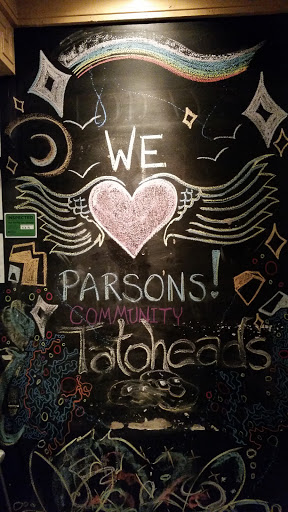 WE
PARSON'S!
COMMUNITY
Tatoheads